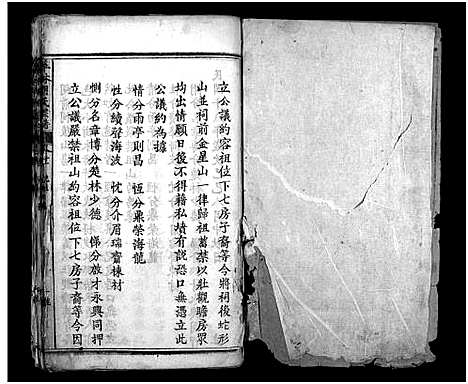 立公議約容祖位下七房子裔等今將祠後蛇形
山並祠前金星山一律歸祖蓄禁以壯觀瞻房眾
均出情願日後不得藉私墳有説恐口無憑立此
公議約為據
情分雨亭則昌　恆分鼎榮海龍
性分續聲海波　忱分介眉瑞齋棟材
惻分名章博分楚林少德　悌分雄才永興同押
立公議嚴禁祖山約容祖位下七房子裔等今因